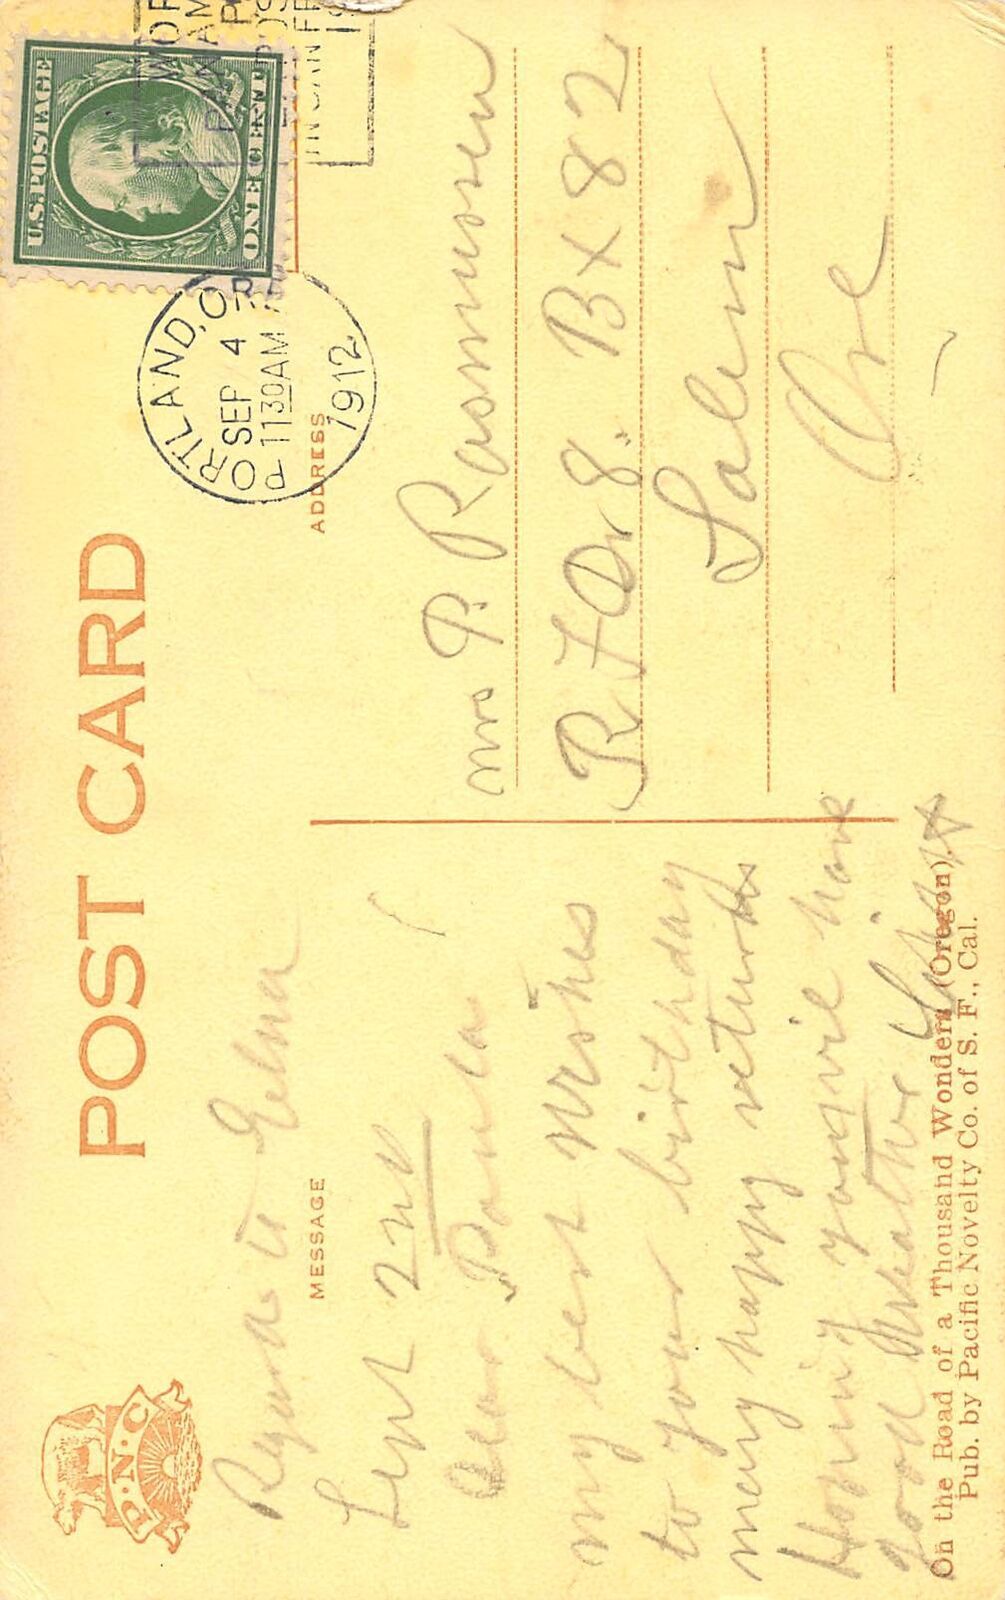 POST CARD
P.N.C.
U.S. POSTAGE
ONE CENT
PORTLAND, OR
SEP 4
1130 AM
1912
MESSAGE
Regards to Edna
Sept 2nd
Dear Paula
my best wishes
to your birthday
meny happy returns
Hoping you wil have
good weather
ADDRESS
Mrs P. Rasmussen
R F D 8. Bx 82
Salem
Ore
On the Road of a Thousand Wonders (Oregon).
Pub. by Pacific Novelty Co. of S. F., Cal.